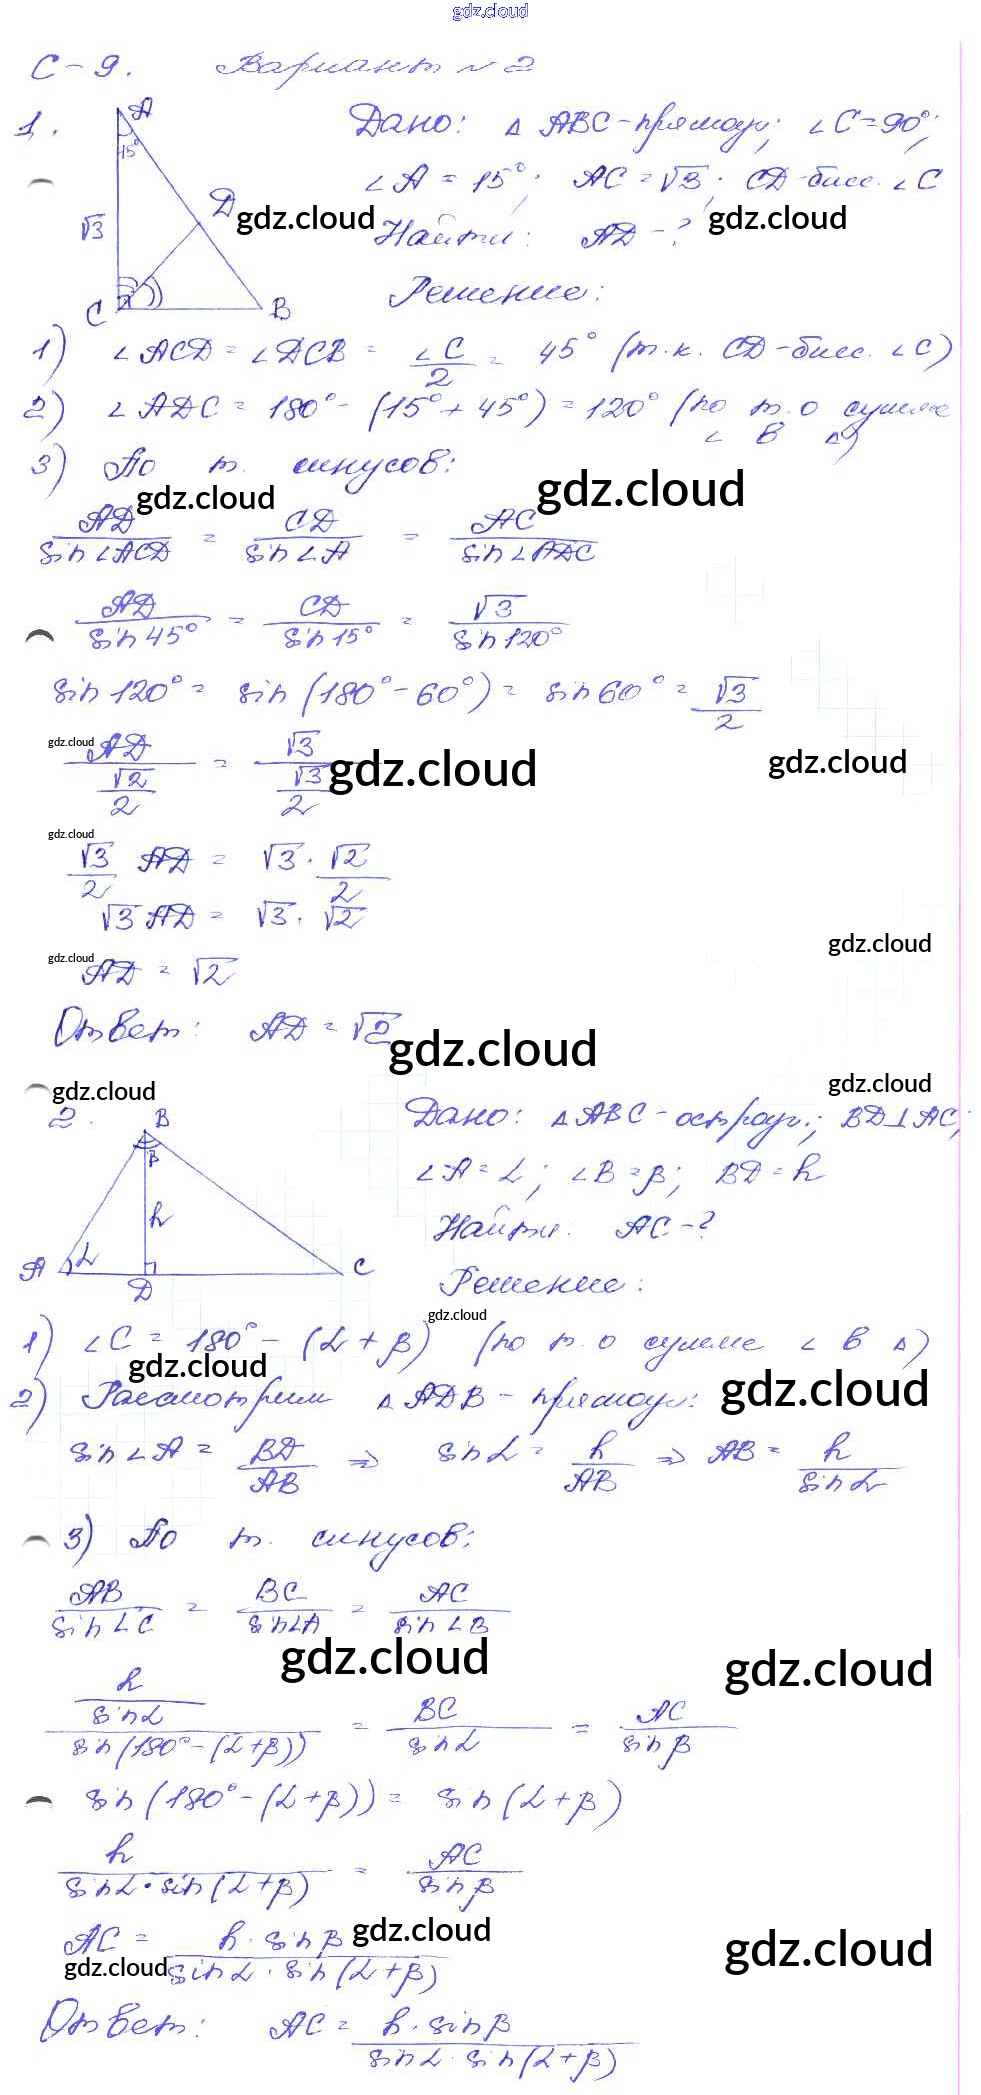 gdz.cloud
С-9. Вариант №2
1.
A
15°
√3
D
C
B
Дано: △ ABC-прямоуг; ∠C=90°;
∠A = 15°; AC=√3; CD-бисс. ∠C
gdz.cloud gdz.cloud
Найти: AD-?
Решение:
1) ∠ACD = ∠DCB = ∠C/2 = 45° (т.к. CD-бисс. ∠C)
2) ∠ADC = 180°-(15°+45°) = 120° (по т. о сумме
∠ в △)
3) По т. синусов:
gdz.cloud gdz.cloud
AD/sin∠ACD = CD/sin∠A = AC/sin∠ADC
AD/sin45° = CD/sin15° = √3/sin120°
sin120° = sin(180°-60°) = sin60° = √3/2
gdz.cloud gdz.cloud gdz.cloud
AD/(√2/2) = √3/(√3/2)
gdz.cloud
√3/2 AD = √3 · √2/2
√3 AD = √3 · √2
gdz.cloud gdz.cloud
AD = √2
Ответ: AD = √2
gdz.cloud
gdz.cloud gdz.cloud
2.
B
β
h
A
α
D
C
Дано: △ABC-остроуг.; BD⊥AC;
∠A=α; ∠B=β; BD=h
Найти: AC-?
Решение:
gdz.cloud
1) ∠C = 180°-(α+β) (по т. о сумме ∠ в △)
gdz.cloud gdz.cloud
2) Рассмотрим △ADB-прямоуг:
sin∠A = BD/AB ⇒ sinα = h/AB ⇒ AB = h/sinα
3) По т. синусов:
AB/sin∠C = BC/sin∠A = AC/sin∠B
gdz.cloud gdz.cloud
(h/sinα)/sin(180°-(α+β)) = BC/sinα = AC/sinβ
sin(180°-(α+β)) = sin(α+β)
h/(sinα·sin(α+β)) = AC/sinβ
AC = h·sinβ/(sinα·sin(α+β))
gdz.cloud gdz.cloud gdz.cloud
Ответ: AC = h·sinβ/(sinα·sin(α+β))